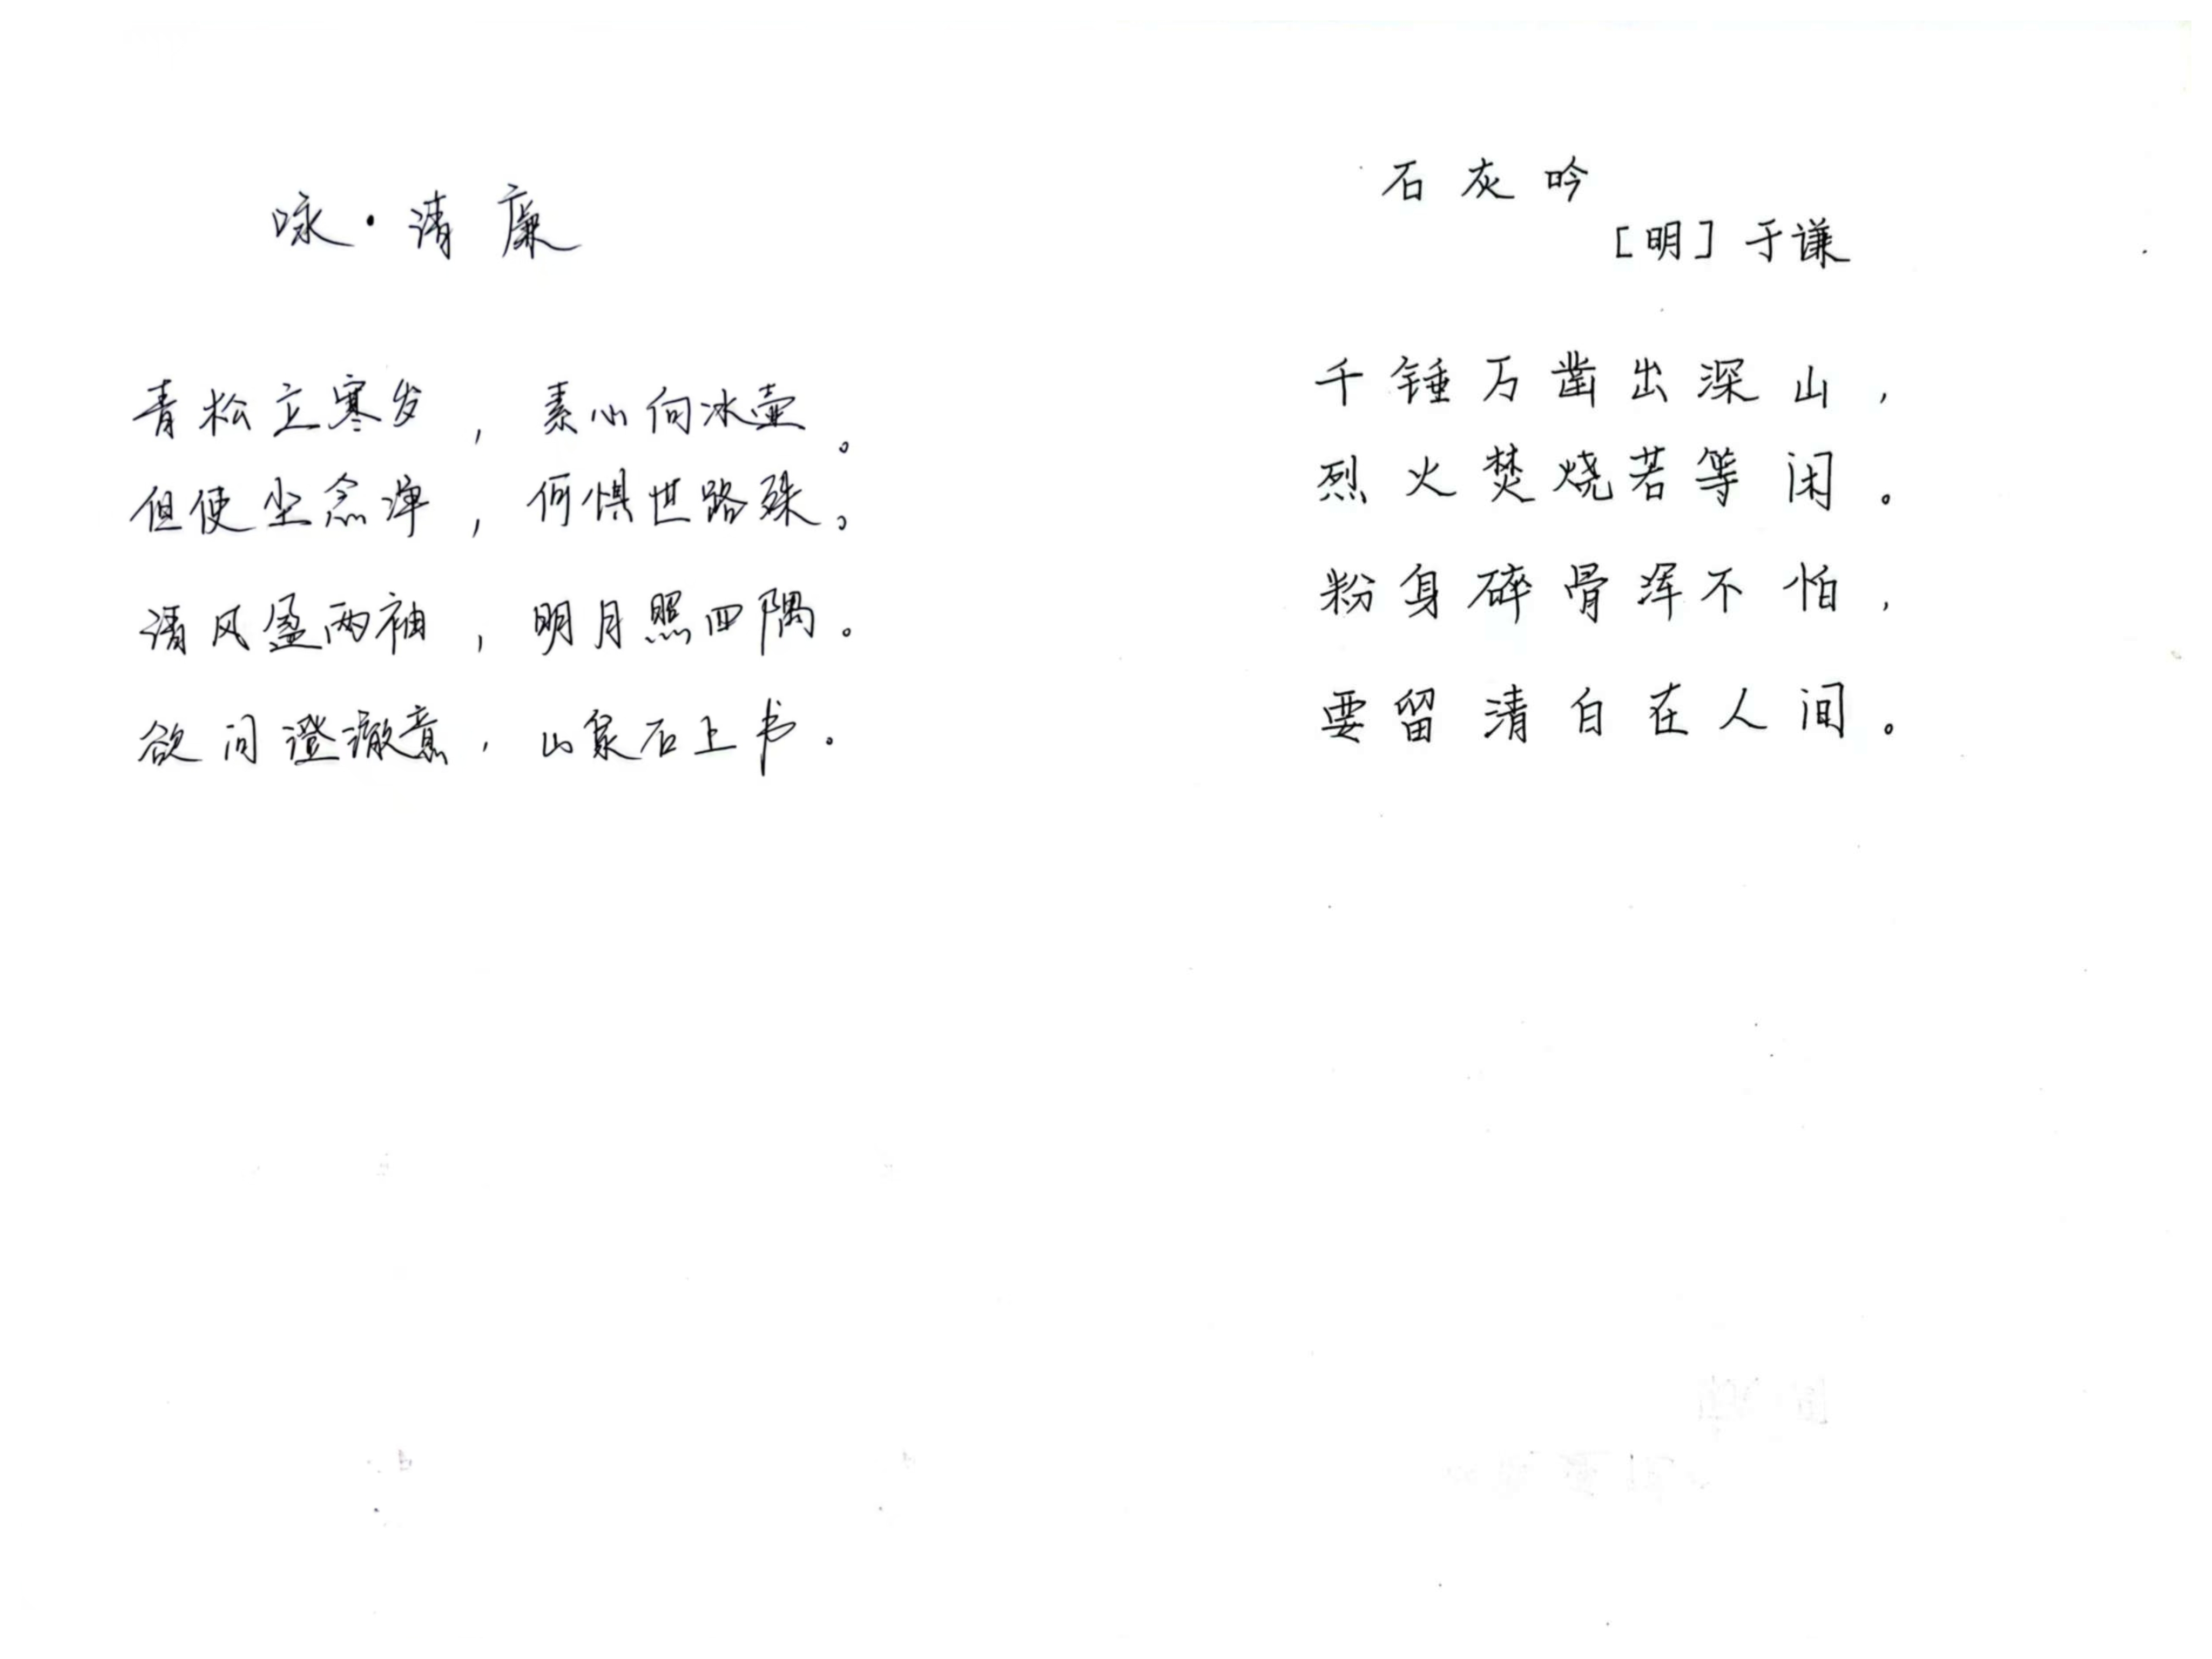 咏·清廉
青松立寒岁，素心向冰壶。
但使尘念净，何惧世路殊。
清风盈两袖，明月照四隅。
欲问澄澈意，山泉石上书。
石灰吟
[明]于谦
千锤万凿出深山，
烈火焚烧若等闲。
粉身碎骨浑不怕，
要留清白在人间。